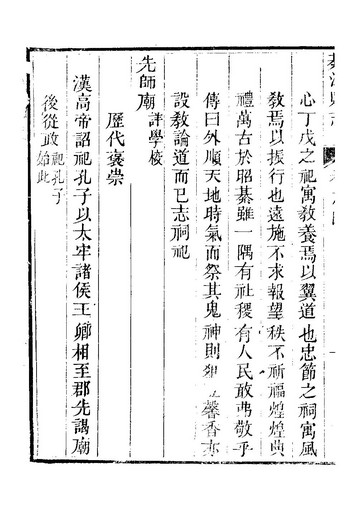 心丁戊之祀寓教養焉以翼道也忠節之祠寓風
教焉以振行也遠施不求報望秩不祈福煌煌典
禮萬古於昭綦雖一隅有社稷有人民敢弗敬乎
傳曰外順天地時氣而祭其鬼神則 馨香亦
設教論道而已志祠祀
先師廟詳學校
歷代褒崇
漢高帝詔祀孔子以太牢諸侯王卿相至郡先謁廟
後從政祀孔子始此